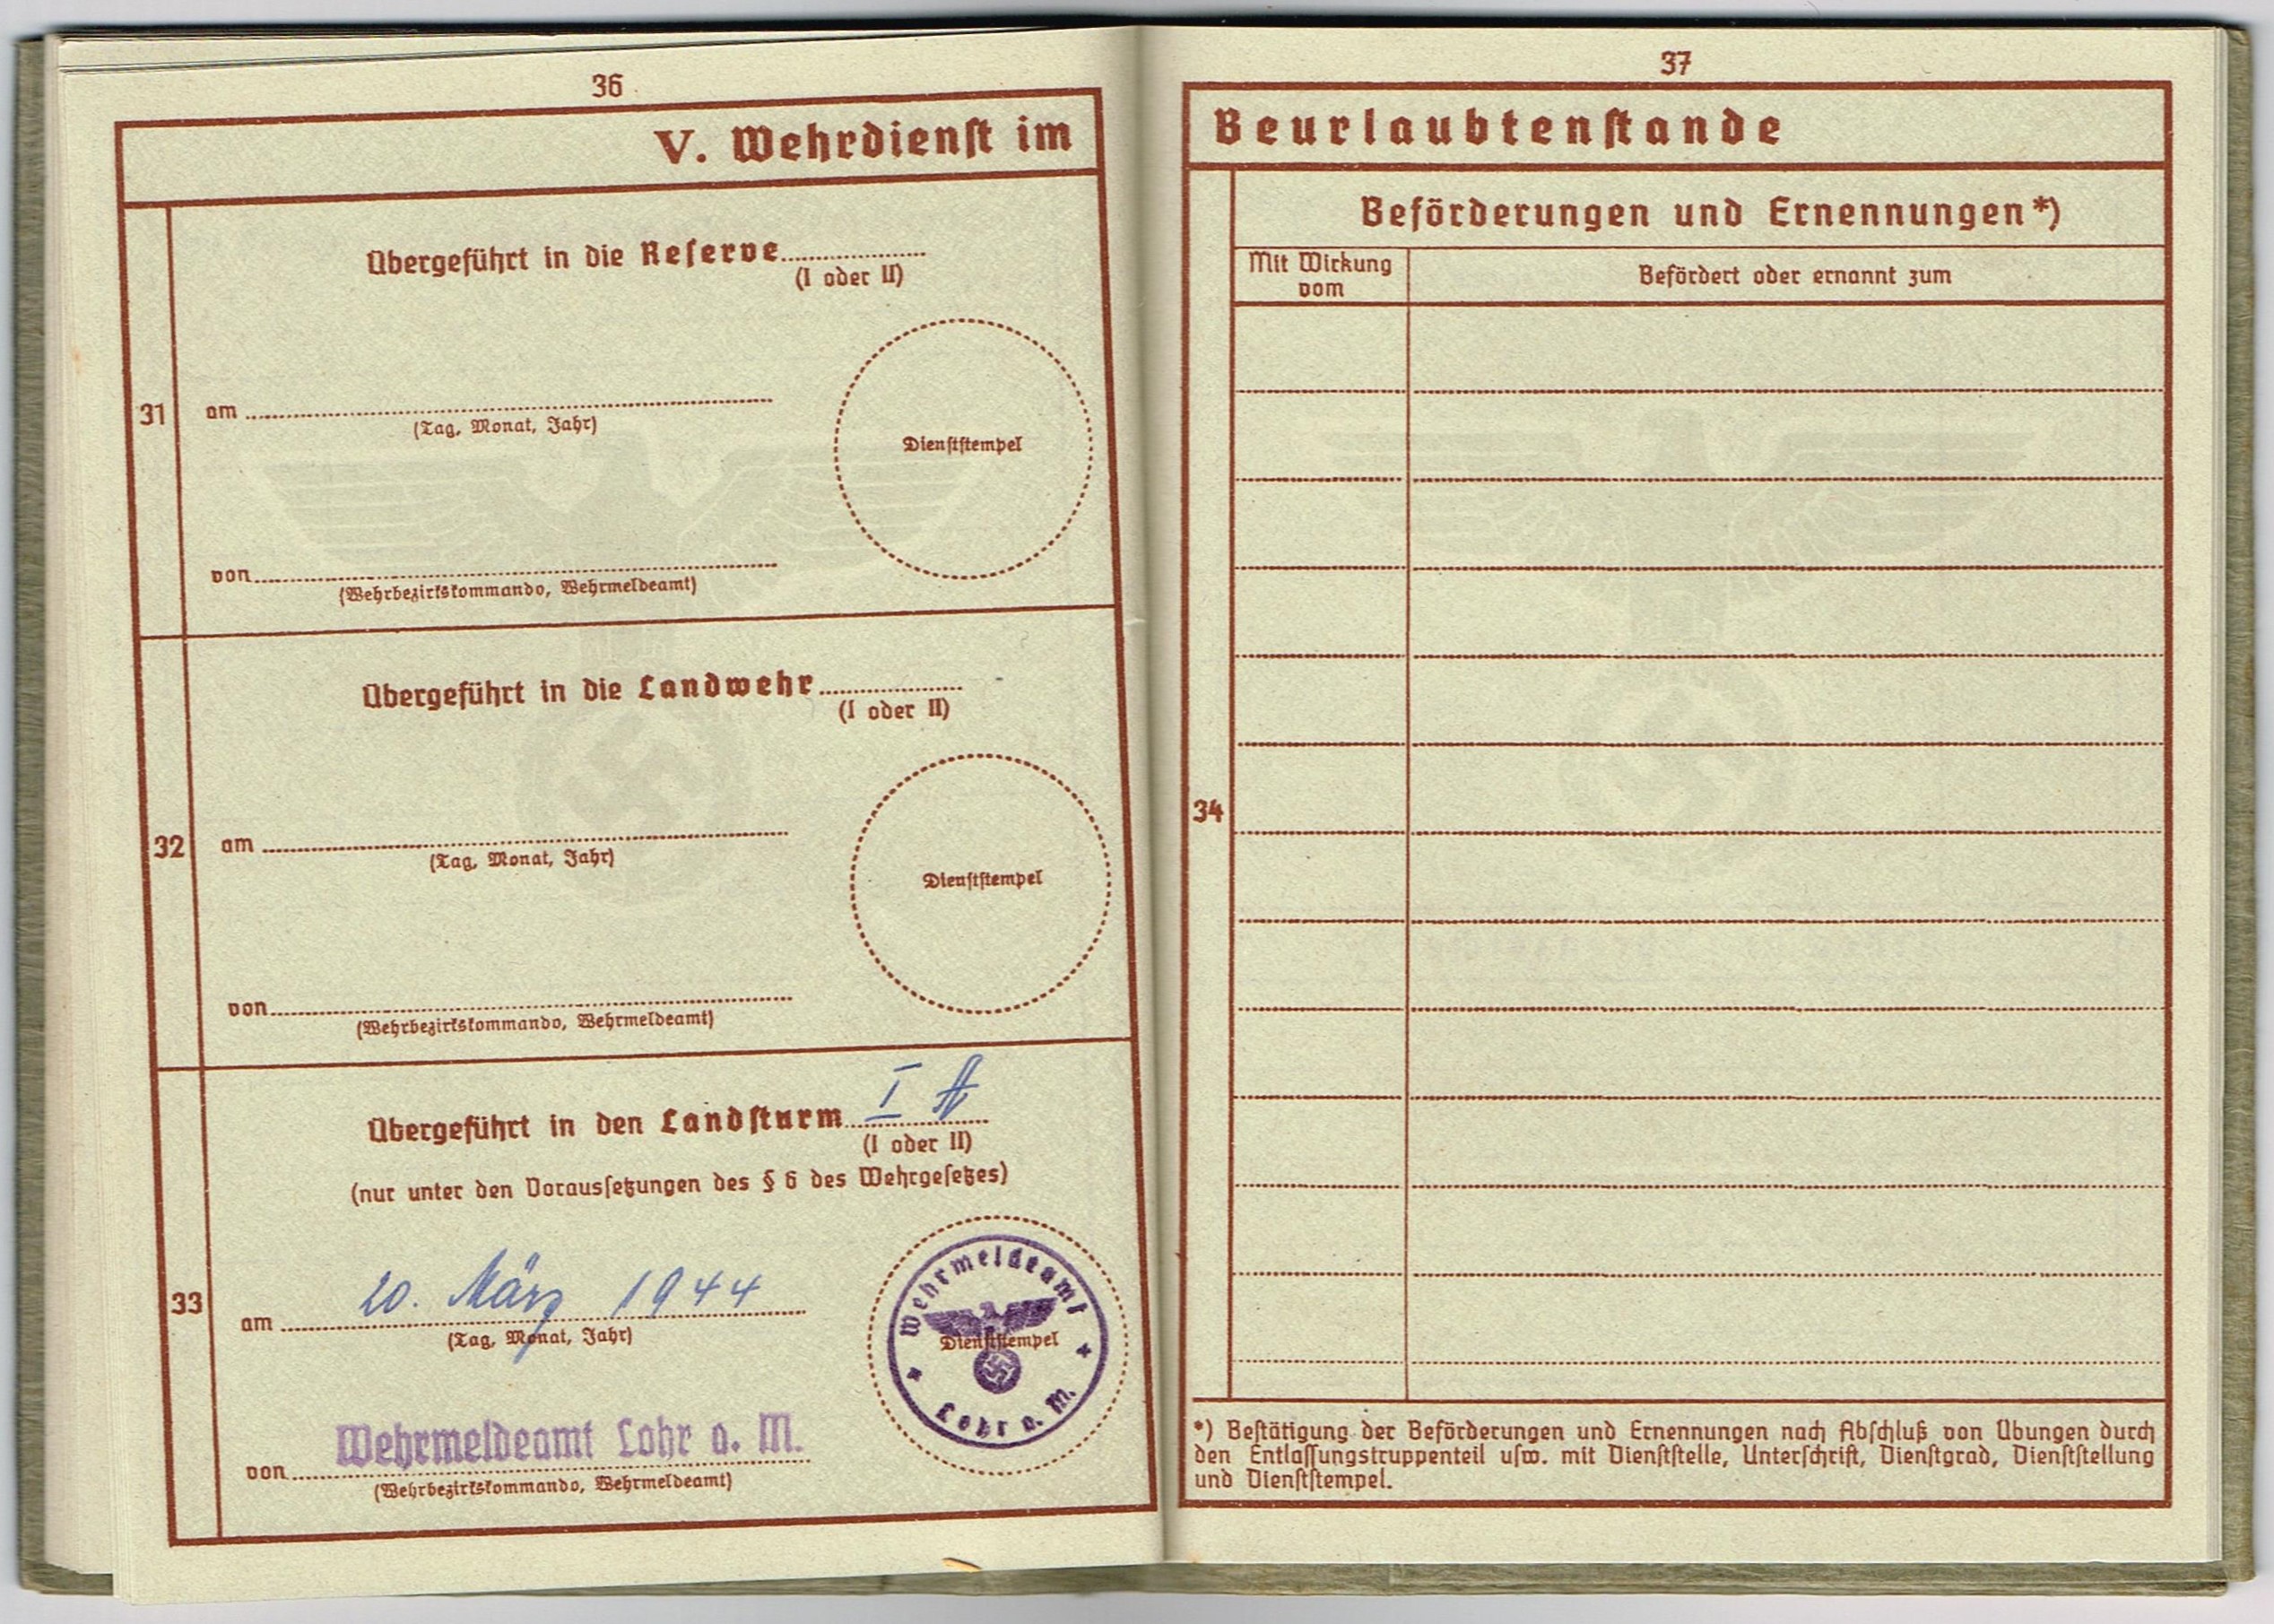 36
V. Wehrdienst im
31
Übergeführt in die Reserve
(I oder II)
am
(Tag, Monat, Jahr)
Dienststempel
von
(Wehrbezirkskommando, Wehrmeldeamt)
32
Übergeführt in die Landwehr
(I oder II)
am
(Tag, Monat, Jahr)
Dienststempel
von
(Wehrbezirkskommando, Wehrmeldeamt)
33
Übergeführt in den Landsturm I A
(I oder II)
(nur unter den Voraussetzungen des § 6 des Wehrgesetzes)
am 20. März 1944
(Tag, Monat, Jahr)
Wehrmeldeamt
Dienststempel
Lohr a. M.
von Wehrmeldeamt Lohr a. M.
(Wehrbezirkskommando, Wehrmeldeamt)
37
Beurlaubtenstande
34
Beförderungen und Ernennungen*)
Mit Wirkung
vom
Befördert oder ernannt zum
*) Bestätigung der Beförderungen und Ernennungen nach Abschluß von Übungen durch
den Entlassungstruppenteil usw. mit Dienststelle, Unterschrift, Dienstgrad, Dienststellung
und Dienststempel.